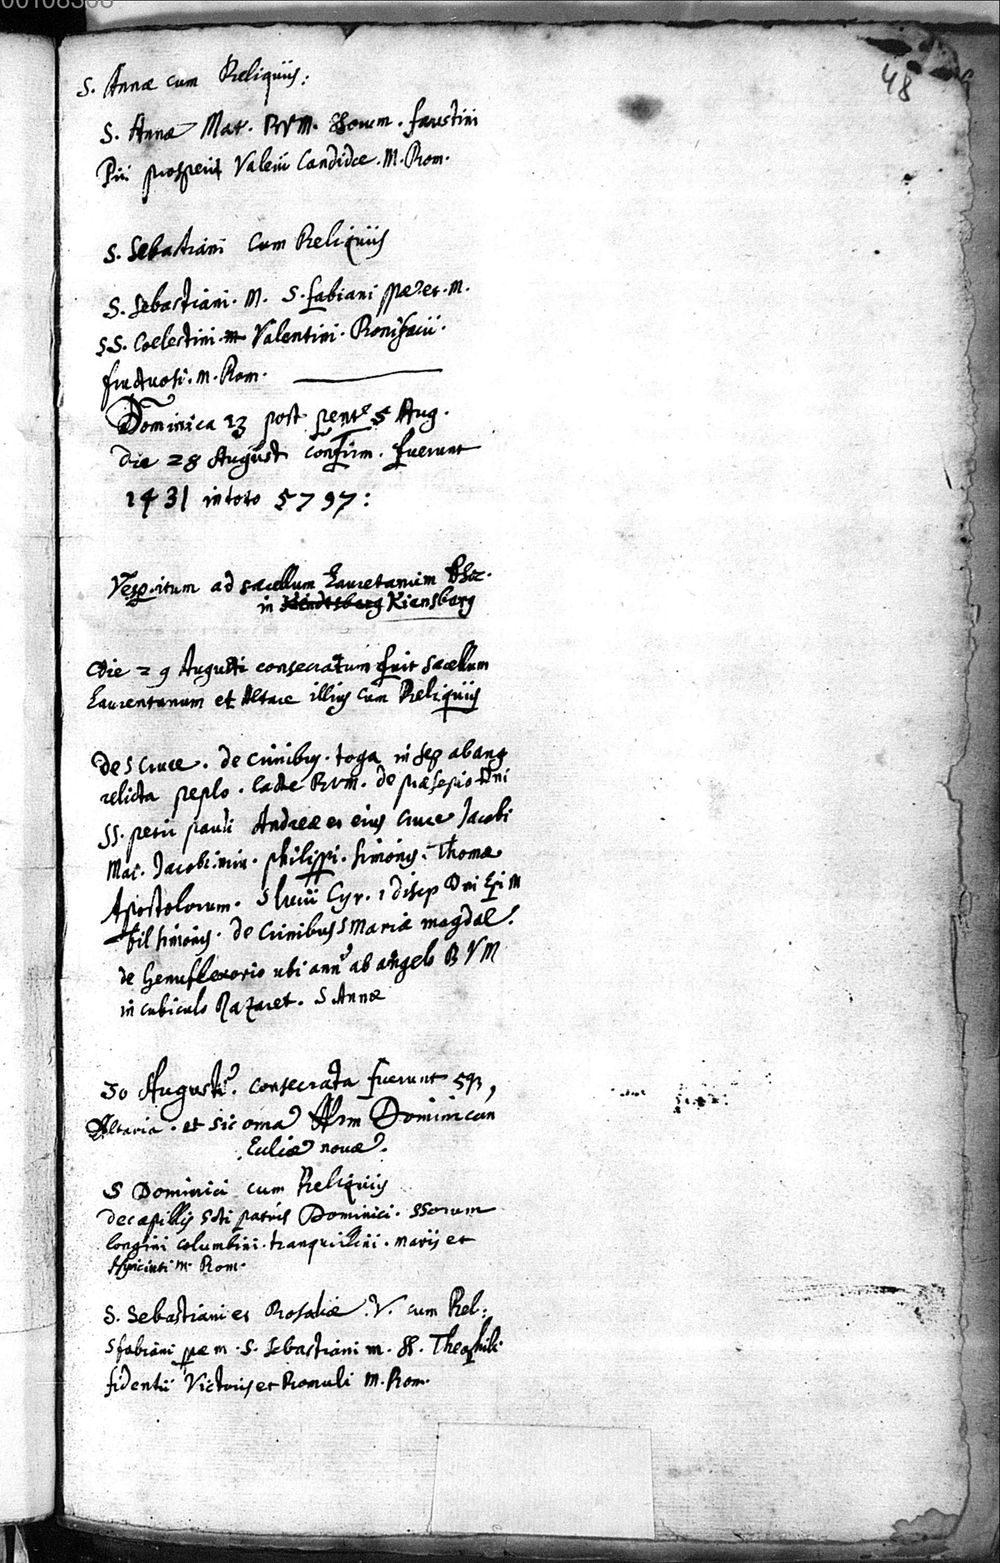 00108308
48
S. Annæ cum Reliquiis:
S. Annæ Mat. BVM. SSorum. faustini
Pii prosperi Valerii Candidæ. M. Rom.
S. Sebastiani Cum Reliquiis
S. Sebastiani. M. S. fabiani pp et. M.
SS. Coelestini. m Valentini. Bonifacii.
fructuosi. m. Rom.
Dominica 13 post pent. 5 Aug.
die 28 August confirm. fuerunt
1431 in toto 5797:
Vesp. itum ad sacellum Lauretanum
in Kiensberg
Die 29 Augusti consecratum fuit sacellum
Laurentanum et Altare illius cum Reliquiis
de S Cruce. de crinibus. toga in ab ang
relicta peplo. lacte BVM. de præsepio Dni
SS. petri pauli Andreæ et eius Cruce Jacobi
Mai. Jacobi min. philippi. simonis. Thomæ
Apostolorum. S lucii Cyr. 1 discip Dni Epi M
fil simonis. de Crinibus S Mariæ magdal.
de Genuflexorio ubi ann. ab angelo B V M
in cubiculo Nazaret. S Annæ
30 Augusti. consecrata fuerunt
Altaria. et sic omā Dominican
Eccliæ novæ.
S Dominici cum Reliquiis
de capillis Scti patris Dominici. SSorum
longini columbini. tranquillini. marii et
Hyacinti m. Rom.
S. Sebastiani et Rosaliæ. V. cum Rel:
S fabiani pp m. S. Sebastiani m. SS. Theophili
fidentii Victoris et Romuli M. Rom.